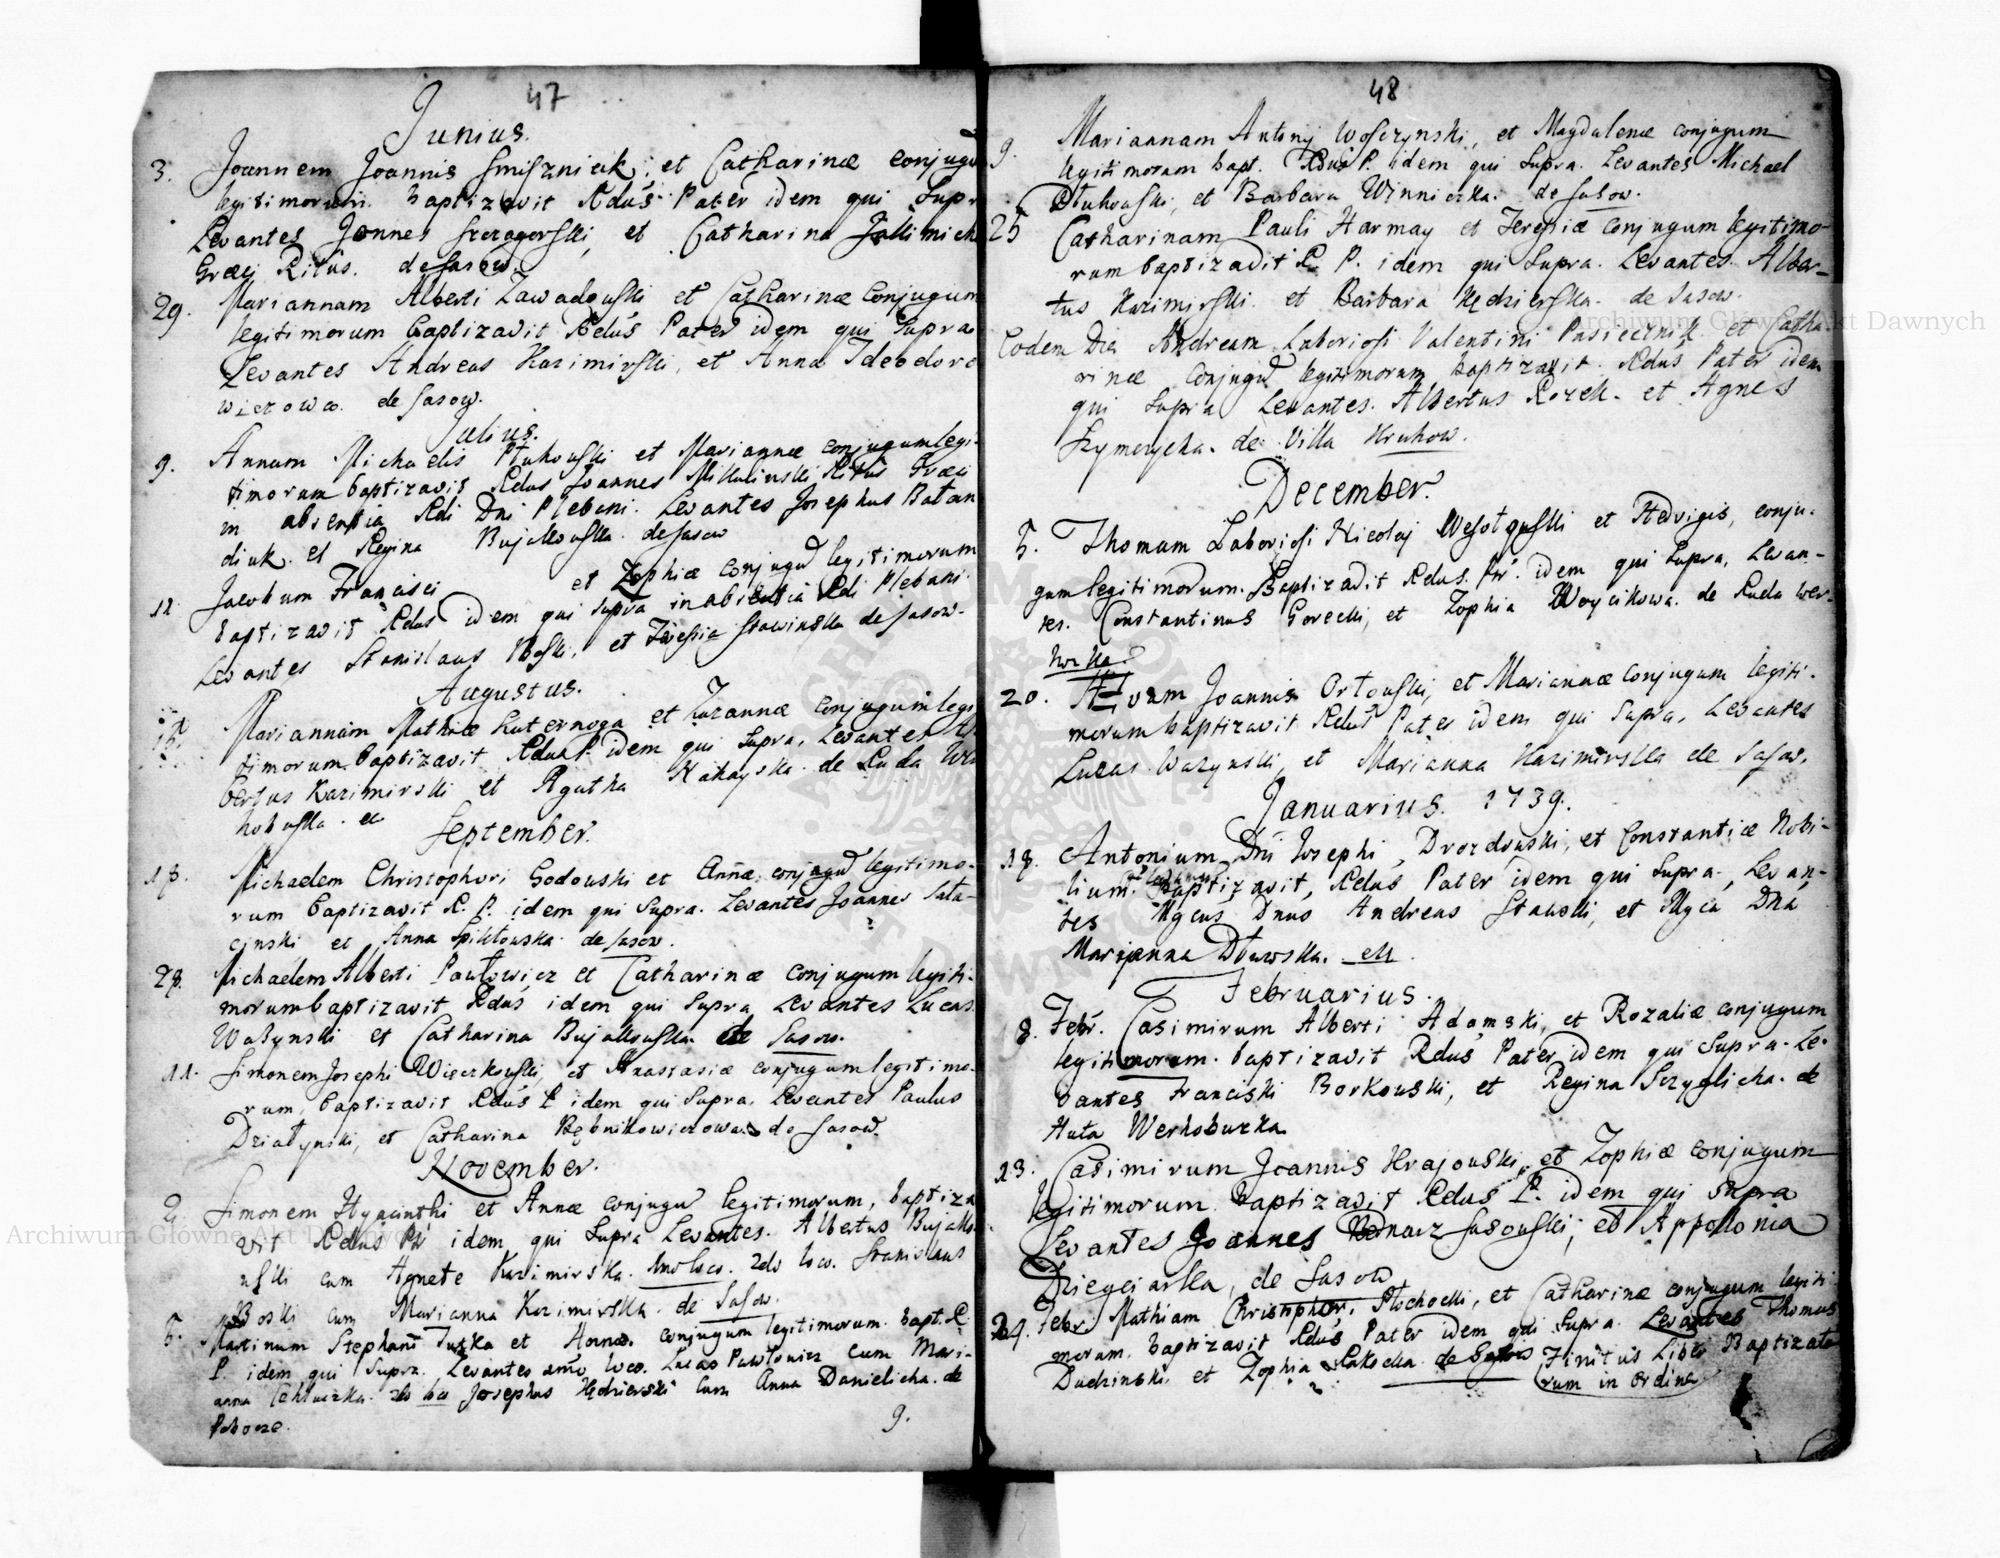 47
Junius.
3. Joannem Joannis Smiszniak, et Catharinæ conjugu
legitimorum baptizavit Rdus Pater idem qui Supr
Levantes Joannes et Catharina
Græci Ritus. de Sasow
29. Mariannam Alberti Zawadouski et Catharinæ Conjugum
legitimorum baptizavit Rdus Pater idem qui Supra
Levantes Andreas Kazimirski, et Anna Theodoro
wiczowa. de Sasow.
Julius.
9. Annam Michaelis Dłuhouski et Mariannæ conjugum legi-
timorum baptizavit Rdus Joannes Mikulinski Ritus Græci
in absentia Rdi Dni Plebani. Levantes Josephus Batan
diuk et Regina Bujakouska de Sasow
12 Jacobum Francisci et Zophiæ conjugu legitimorum
baptizavit Rdus idem qui supra in absentia Rdi Plebani.
Levantes Stanislaus Boski, et Theresia Stawinska de Sasow.
Augustus.
Mariannam Mathiæ Kuternoga et Zuzannæ conjugum legi
timorum baptizavit Rdus P. idem qui Supra, Levantes Al
bertus Kazimirski et Agatha de Ruda Wer
hobuska.
September.
18. Michaelem Christophori Godouski et Annæ conjugu legitimo-
rum baptizavit R. P. idem qui Supra. Levantes Joannes Sala-
cinski et Anna Spiktowska de Sasow.
28. Michaelem Alberti Pawłowicz et Catharinæ conjugum legiti-
morum baptizavit Rdus idem qui Supra Levantes Lucas
Wazynski et Catharina Bujakouska de Sasow.
11. Simonem Josephi Więczkouski, et Anastasiæ conjugum legitimo-
rum, baptizavit Rdus P idem qui Supra, Levantes Paulus
Działynski, et Catharina Rębnikowiczowa de Sasow.
November.
2. Simonem Hyacinthi et Annæ conjugu legitimorum, baptiza
vit Rdus Pr idem qui Supra Levantes. Albertus Bujako
uski cum Agnete Kazimirska. 1mo loco. 2do loco. Stanislaus
Boski cum Marianna Kazimirska de Sasow.
5. Martinum Stephani Tuzka et Annæ. conjugum legitimorum. bapt. R.
P. idem qui Supra. Levantes 1mo loco. Lucas Pawłowicz cum Mari-
anna 2do loco Josephus Kędzierski cum Anna Danielicha. de
Pobocze.
9.
48
9. Mariannam Antonij Wosczynski, et Magdalenæ conjugum
legitimorum bapt. Rdus P. idem qui Supra. Levantes Michael
Dłuhouski, et Barbara Winniczka. de Sasow.
25 Catharinam Pauli Harmay et Teresiæ conjugum legitimo-
rum baptizavit R P. idem qui Supra. Levantes. Alber-
tus Kazimirski. et Barbara Kędzierska. de Sasow.
Eodem Die Andream Laboriosi Valentini Pasiecznik et Catha
rinæ conjugu legitimorum baptizavit. Rdus Pater idem
qui Supra Levantes. Albertus Rozek. et Agnes
Szymczycha. de Villa Hruhow.
December.
5. Thomam Laboriosi Nicolaj Wesołouski et Hedvigis, conju-
gum legitimorum. Baptizavit Rdus. Ptr. idem qui Supra, Levan-
tes. Constantinus Gorecki, et Zophia Woycikowa. de Ruda Wer-
hobuzka.
20. Adam Joannis Ortouski, et Mariannæ conjugum legiti-
morum baptizavit Rdus Pater idem qui Supra, Levantes
Lucas Wazynski, et Marianna Kazimirska de Sasow.
Januarius. 1739.
18. Antonium Dni Josephi Drozdouski, et Constantiæ Nobi-
lium. baptizavit, Rdus Pater idem qui Supra, Levan-
tes Mgcus Dnus Andreas Stawski, et Mgca Dna
Marjanna Dłuwska.
Februarius.
8. Febr. Casimirum Alberti Adamski, et Rozaliæ conjugum
legitimorum. baptizavit Rdus Pater idem qui Supra. Le-
vantes Franciski Borkouski, et Regina Sczyglicha. de
Huta Werhobuzka
13. Casimirum Joannis Krajouski, et Zophiæ conjugum
legitimorum baptizavit Rdus P. idem qui supra
Levantes Joannes Bednarz Sasouski, et Appollonia
Dziegciarka, de Sasow
24. Febr. Mathiam Christophori Płochocki, et Catharinæ conjugum legiti
morum. baptizavit Rdus Pater idem qui Supra Levantes Thomas
Dudzinski et Zophia de Sasow Finitus Liber Baptizato
rum in ordine
Archiwum Główne Akt Dawnych
Archiwum Główne Akt Dawnych